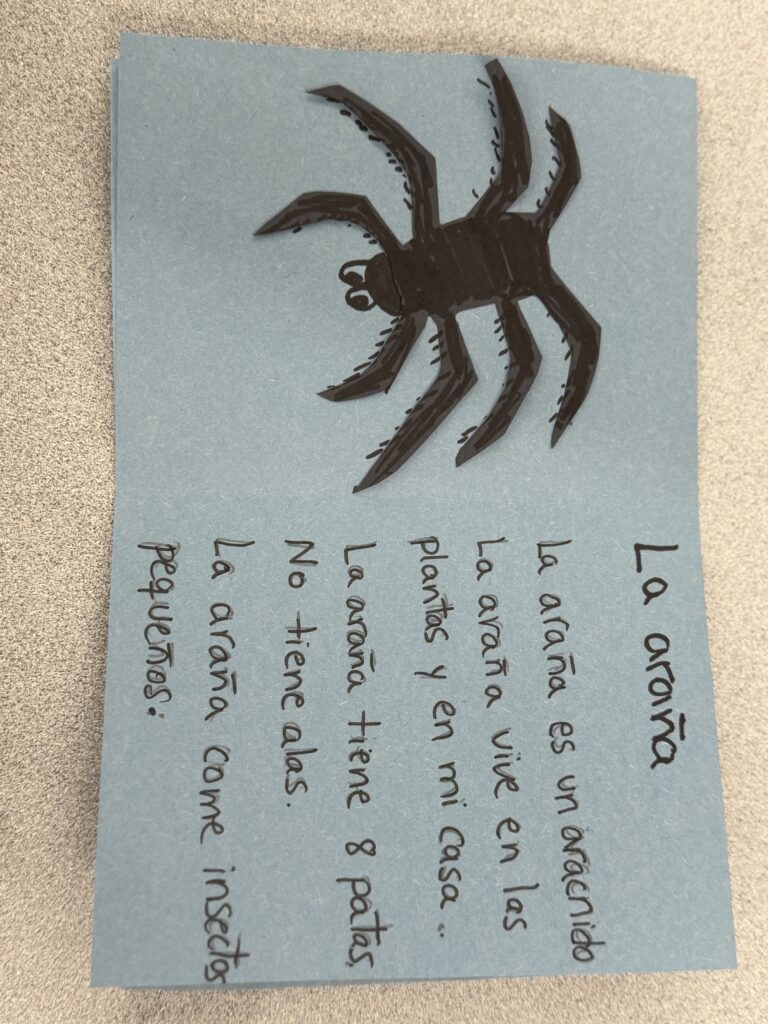 La araña
La araña es un arácnido
La araña vive en las
plantas y en mi casa..
La araña tiene 8 patas.
No tiene alas.
La araña come insectos
pequeños.